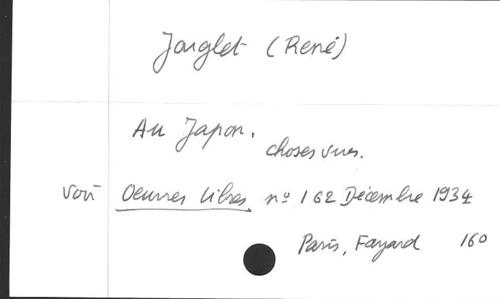 Jouglet (René)
Au Japon.
choses vues.
voir Oeuvres libres nº 162 Décembre 1934
Paris, Fayard 160